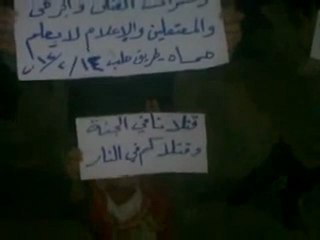 وعشرات القتلى والجرحى
والمعتقلين والإعلام لا يعلم
حماه طريق حلب
قتلانا في الجنة
وقتلاكم في النار